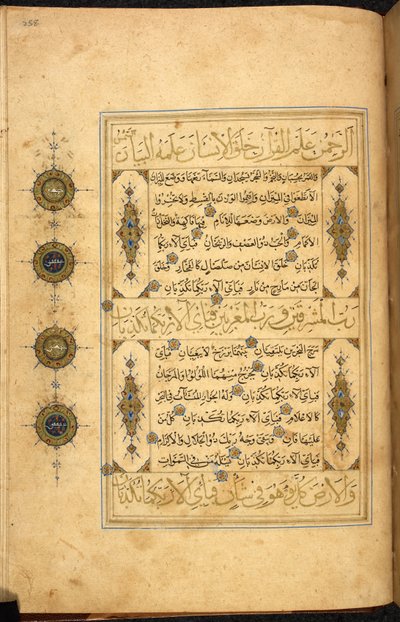 258
الرحمن علم القرآن خلق الانسان علمه البيان الشمس
والقمر بحسبان والنجم والشجر يسجدان والسماء رفعها ووضع الميزان
الا تطغوا في الميزان واقيموا الوزن بالقسط ولا تخسروا
الميزان والارض وضعها للانام فيها فاكهة والنخل ذات
الاكمام والحب ذو العصف والريحان فباي آلاء ربكما
تكذبان خلق الانسان من صلصال كالفخار وخلق
الجان من مارج من نار فباي آلاء ربكما تكذبان
رب المشرقين ورب المغربين فباي آلاء ربكما تكذبان
مرج البحرين يلتقيان بينهما برزخ لا يبغيان
فباي آلاء ربكما تكذبان يخرج منهما اللؤلؤ والمرجان
فباي آلاء ربكما تكذبان وله الجوار المنشآت في البحر
كالاعلام فباي آلاء ربكما تكذبان كل من
عليها فان ويبقى وجه ربك ذو الجلال والاكرام
فباي آلاء ربكما تكذبان يسئله من في السموات
والارض كل يوم هو في شان فباي آلاء ربكما تكذبان